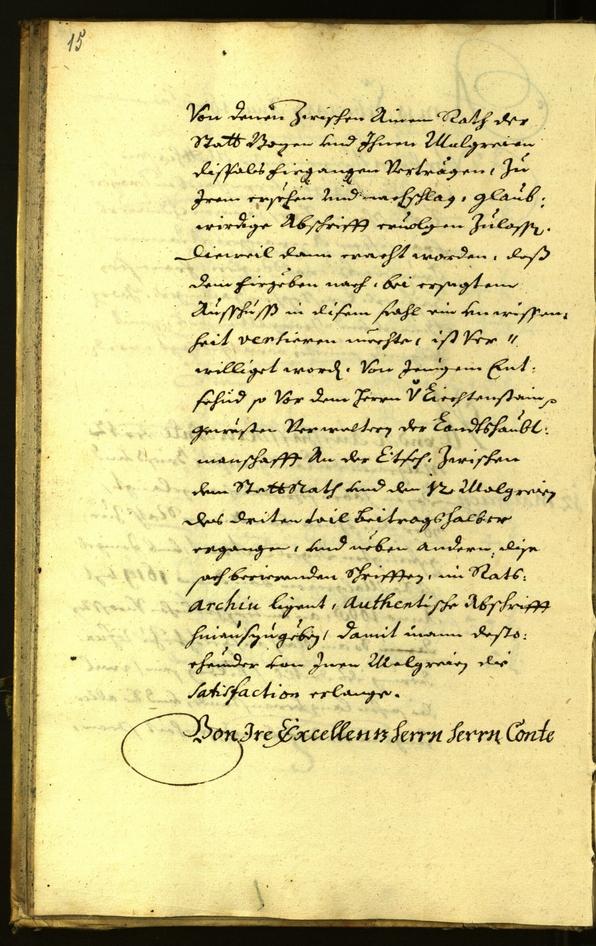 15
Von denen Zwischen Ainem Rath der
Statt Bozen vnd Ihnen Malgreien
dissfals fürgangen Verträgen, Zu
Irem ersehen Vnd nachschlag, glaub:
wirdige Abschrifft eruolgen Zulassen.
Dieweil dann eracht worden, dass
dem fürgeben nach, bei ersagtem
Ausschuss in disem fahl ein vnwissen:
heit versieren möchte, ist Ver"
williget word. Von Jenigem Ent:
schid so Vor dem Herrn V Liechtenstain
gewesten Verwaltern der Landtshaubt:
manschafft An der Etsch. Zwischen
dem StattRath vnd den 12 Malgreien
des driten tail Beitragshalber
ergangen, vnd neben andern, dise
sach berierenden Schrifften, im Rats:
Archiu ligent, Authentische Abschrifft
hinauszugeben, damit mann desto:
ehender von Inen Malgreien die
Satisfaction erlange.
Von Ire Excellenz herrn herrn Conte